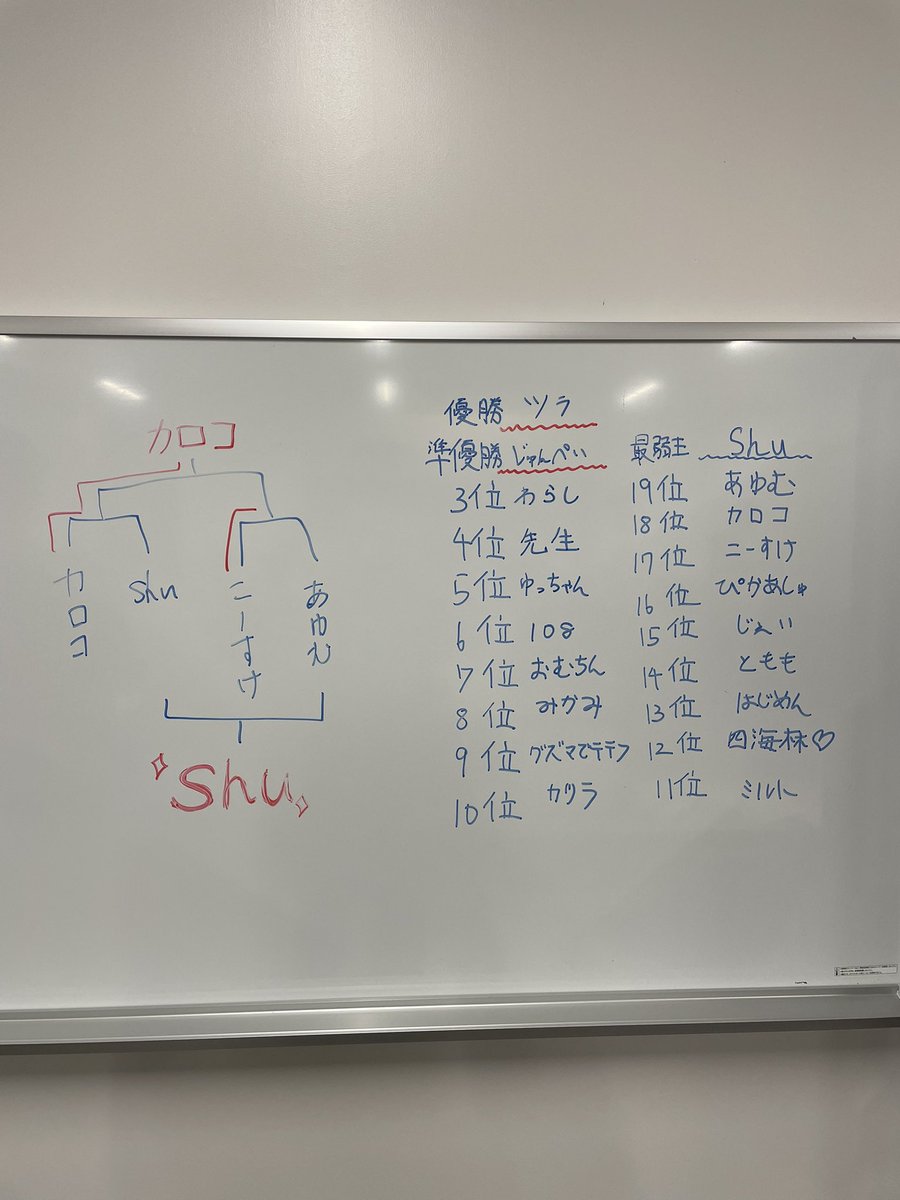 カロコ
カロコ
Shu
こーすけ
あゆむ
Shu
優勝 ツラ
準優勝 じゅんぺい
3位 わらし
4位 先生
5位 ゆっちゃん
6位 108
7位 おむちん
8位 みかみ
9位 グズマでテテフ
10位 カツラ
最弱王 Shu
19位 あゆむ
18位 カロコ
17位 こーすけ
16位 ぴかあしゅ
15位 じぇい
14位 ともも
13位 はじめん
12位 四海林♡
11位 ミルト